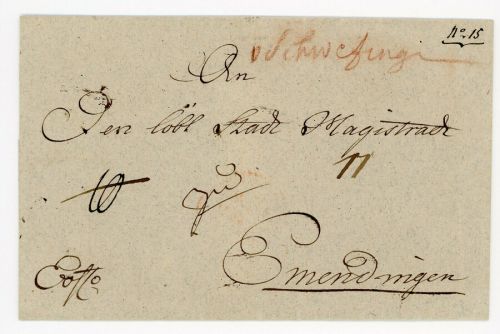 No. 15
v Schwefing
An
Den löbl Stadt Magistradt
11
zu
Emendingen